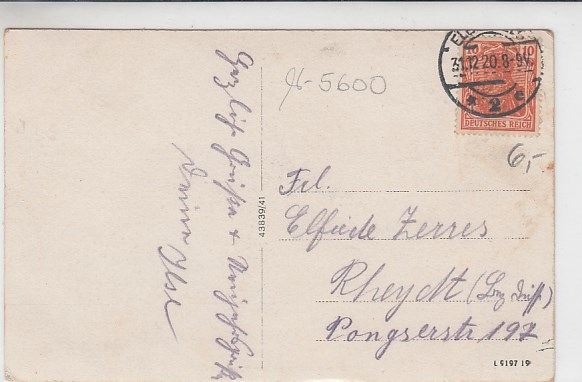 Herzliche Grüße + Neujahrsgrüße
Deine Ilse
43839/41
5600
10 10
31.12.20.8-9V.
* 2 c
DEUTSCHES REICH
6,-
Frl.
Elfriede Zerres
Rheydt (Bez. Düss)
Pongserstr 197
L 6197 19